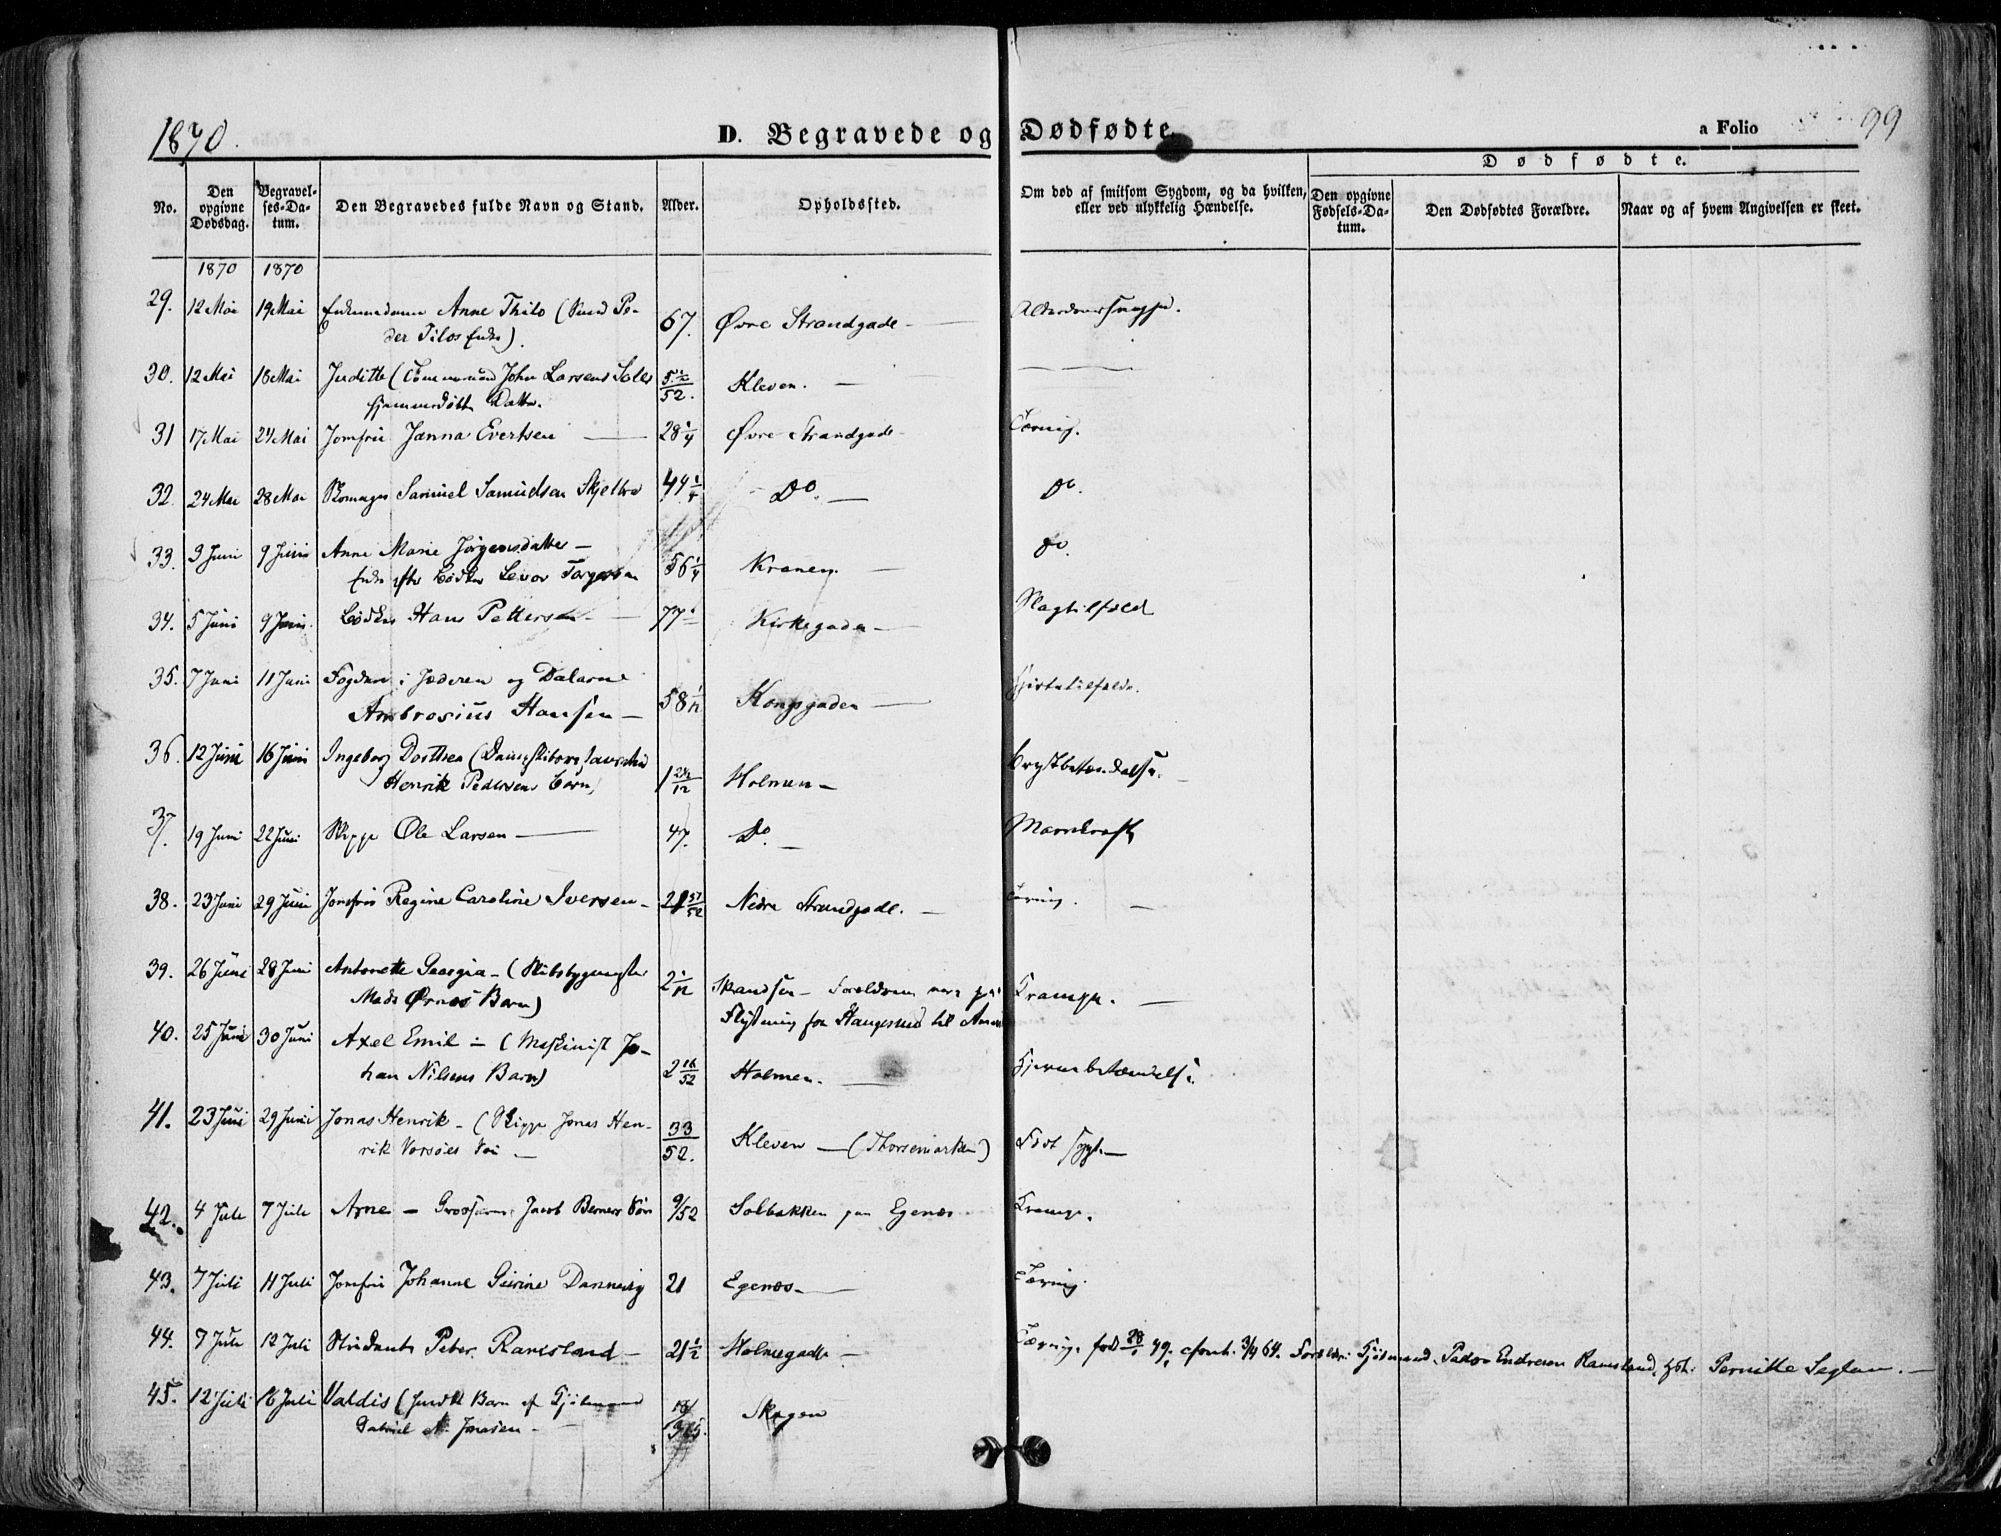 1870.
D. Begravede og Dødfødte.
a Folio 99
No.
Den opgivne Dødsdag.
Begravelses-Datum.
Den Begravedes fulde Navn og Stand.
Alder.
Opholdssted.
Om død af smitsom Sygdom, og da hvilken, eller ved ulykkelig Hændelse.
Dødfødte.
Den opgivne Fødsels-Datum.
Den Dødfødtes Forældre.
Naar og af hvem Angivelsen er skeet.
1870 1870
29. 12 Mai 19 Mai Anne Thilo ( Pe-
der Tilos Enke). 67. Øvre Strandgade —
30. 12 Mai 18 Mai Juditte ( John Larsens
Datter. 52. Kleven. —
31 17 Mai 24 Mai Jomfru Janna Evertsen — 28 1/4 Øvre Strandgade Tæring.
32. 24 Mai 28 Mai Samuel Samuelsen 44 1/4 Do. — Do.
33. 3 Juni 9 Juni Anne Marie Jørgensdatter —
Enke efter Bødker 56 1/4 Kranen — Do.
34. 5 Juni 9 Juni. Bødker Hans Pettersen — 77 Kirkegaden — Slagtilfæld
35. 7 Juni 11 Juni Fogden i Jæderen og Dalarne
Ambrosius Hansen — 58 1/12 Kongsgaden — Hjertetilfælde.
36. 12 Juni 16 Juni Ingeborg Dorthea (
Henrik Pedersens Barn) 1 Holmen — Brystbetændelse. —
37. 19 Juni 22 Juni Ole Larsen — 47. Do. —
38. 23 Juni 29 Juni Jomfru Regine Caroline Iversen — Nedre Strandgade. — Tæring. —
39. 26 Juni 28 Juni Antonette Georgia — (Skibsbygmester
Mads Ørnes Barn) 2 1/12 Skandsen — Forældrene var paa Krampe. —
Flytning fra til
40. 25 Juni 30 Juni Axel Emil — (Maskinist Jo-
han Nilsens Barn) 2 16/52 Holmen. — Hjernebetændelse.
41. 23 Juni 29 Juni Jonas Henrik — ( Jonas Hen-
rik Vorsøes Søn — 33/52. Kleven — (Thorsemarken) Født
42. 4 Juli 7 Juli Arne — Jacob Berners Søn 9/52 Solbakken paa Egenæs Krampe.
43. 7 Juli 11 Juli Jomfru Johanne Sivine Dannevig 21 Egenæs — Tæring.
44. 7 Juli 12 Juli Student Peter Ramsland — 21 1/2 Holmegade — Tæring. født 49. confi. 3/4 64. Forældre: Peder Endresen Ramsland, Pernitte .—
45. 12 Juli 16 Juli Valdis ( Barn af
Gabriel N. Jonasen — 18/365. Skagen